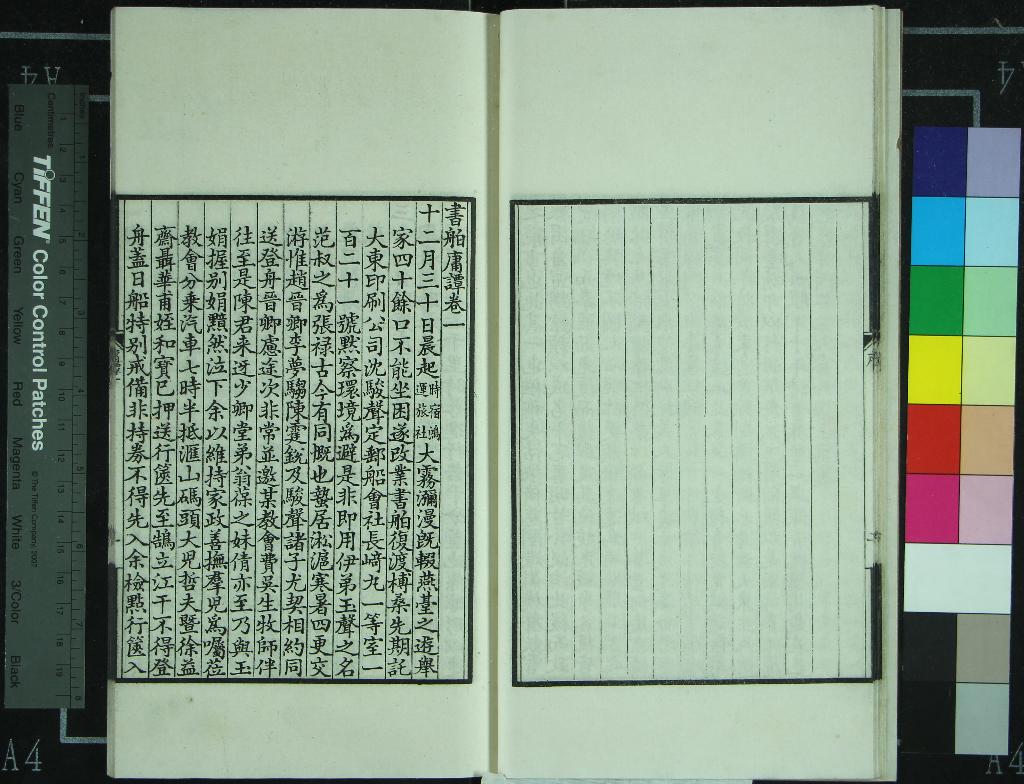 書舶庸譚卷一
十二月三十日晨起時宿鴻運旅社大霧瀰漫旣輟燕臺之遊舉
家四十餘口不能坐困遂改業書舶復渡榑桑先期託
大東印刷公司沈駿聲定郵船會社長﨑丸一等室一
百二十一號默察環境爲避是非即用伊弟玉聲之名
范叔之爲張祿古今有同慨也蟄居淞滬寒暑四更交
游惟趙晉卿李夢騶陳霆銳及駿聲諸子尤契相約同
送登舟晉卿慮途次非常並邀某教會費吳生牧師伴
往至是陳君来迓少卿堂弟翁葆之妹倩亦至乃與玉
娟握别娟黯然泣下余以維持家政善撫羣兒爲囑莅
教會分乗汽車七時半抵滙山碼頭大兒哲夫暨徐益
齋聶華甫姪和寶已押送行篋先至鵠立江干不得登
舟蓋日船特别戒備非持券不得先入余檢點行篋入
TIFFEN Color Control Patches
© The Tiffen Company, 2007
Centimetres
Inches
Blue
Cyan
Green
Yellow
Red
Magenta
White
3/Color
Black
A4
A4
A4
A4